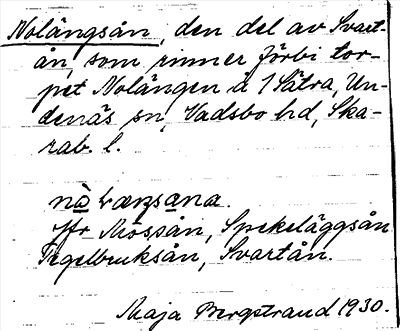 Nolängsån, den del av Svart-
ån, som rinner förbi tor-
pet Nolängen å 1 Sätra, Un-
denäs sn, Vadsbo hd, Ska-
rab. l.
Jfr Mossån, Spekeläggsån
Tegelbruksån, Svartån.
Maja Bergstrand 1930.